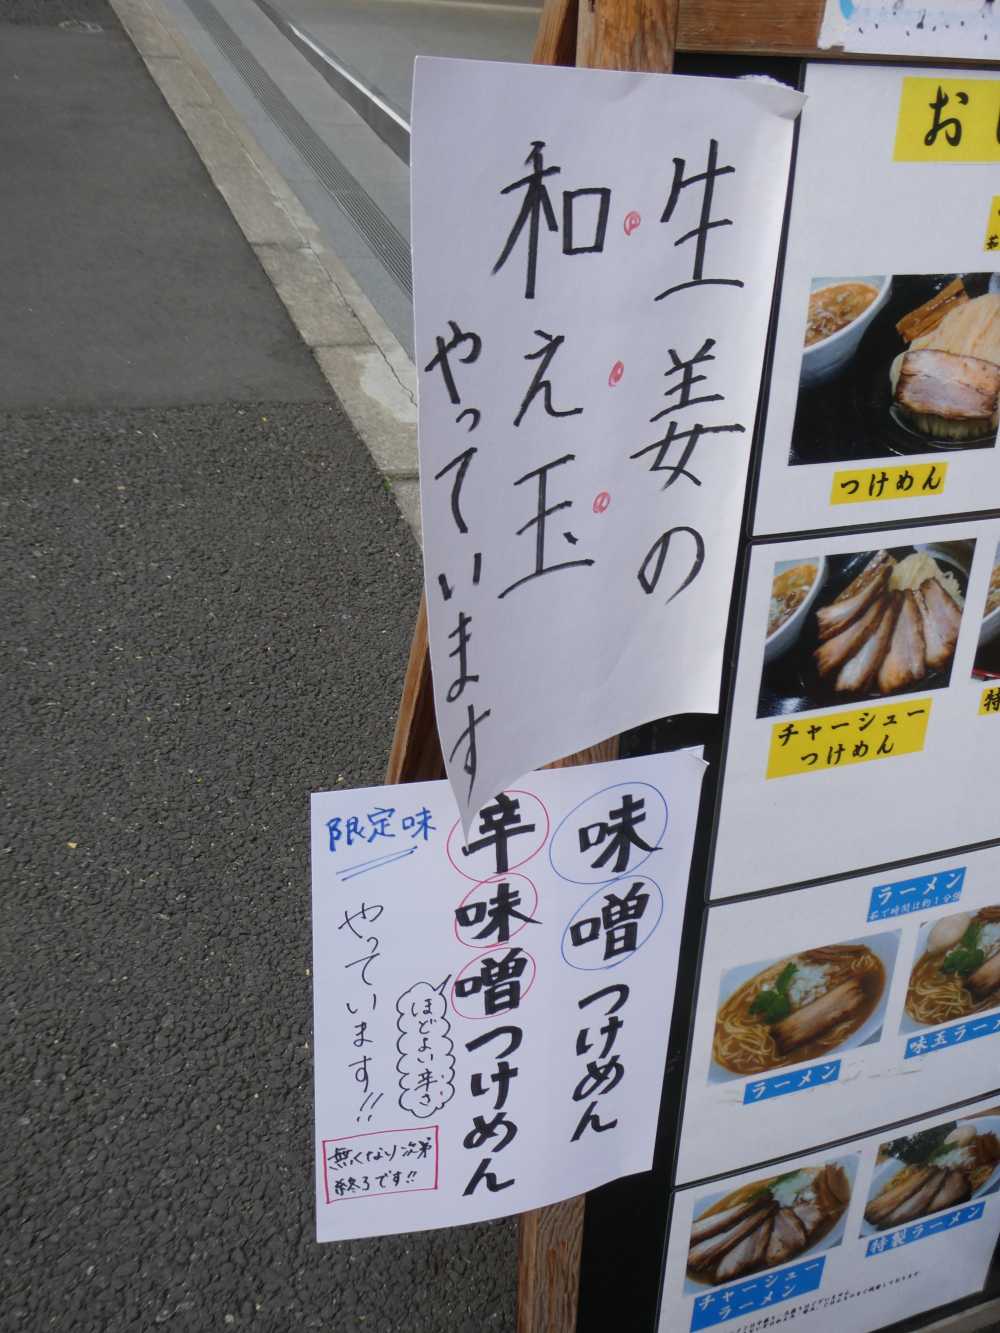 生姜の
和え玉
やっています
味噌つけめん
辛味噌つけめん
ほどよい辛さ
限定味
やっています!!
無くなり次第
終了です!!
お
つけめん
チャーシュー
つけめん
特
ラーメン
茹で時間は約1分半
ラーメン
味玉ラーメ
チャーシュー
ラーメン
特製ラーメン